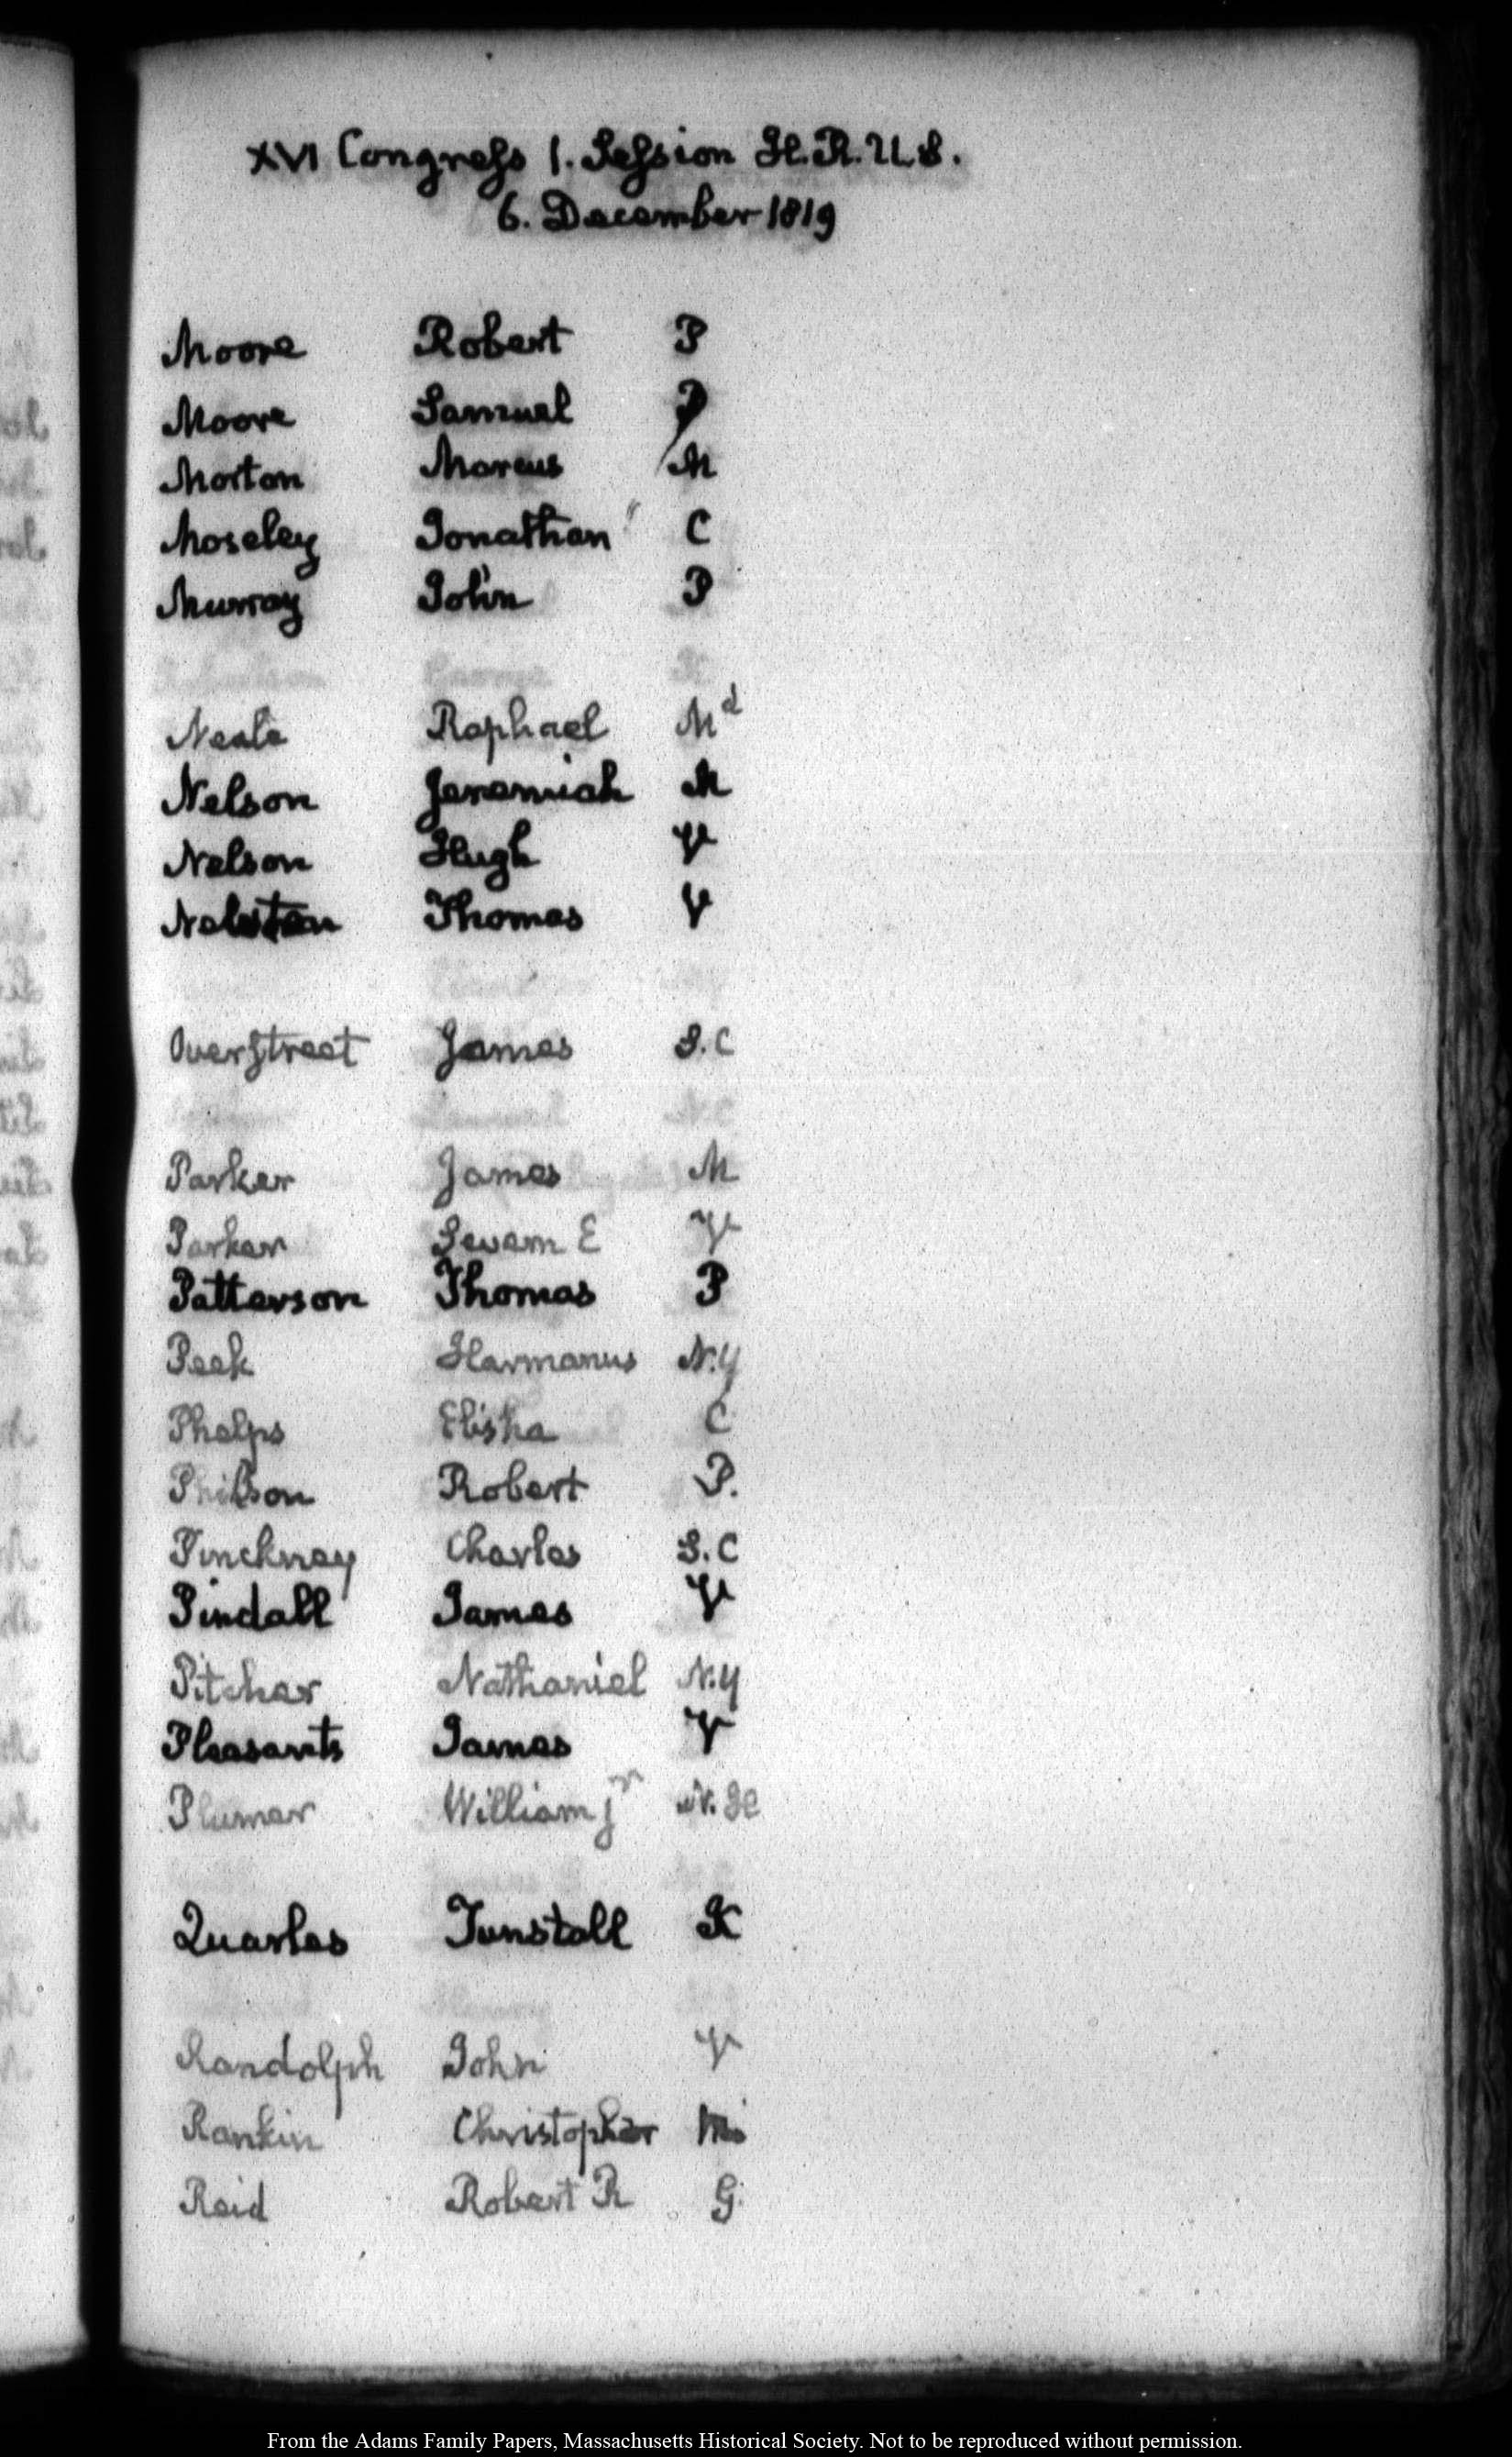 XVI Congress 1. Session H.R.U.S.
6. December 1819
Moore Robert P
Moore Samuel P
Morton Marcus M
Moseley Jonathan C
Murray John P
Neale Raphael Md
Nelson Jeremiah M
Nelson Hugh V
Thomas V
Overstreet James S.C
Parker James M
Parker Sevarn E V
Patterson Thomas P
Peek Harmanus N.Y
Phelps Elisha C
Philson Robert P.
Pinckney Charles S.C
Pindall James V
Pitcher Nathaniel N.Y
Pleasants James V
Plumer William jr N.H
Quarles Tunstall K
Randolph John V
Rankin Christopher Mi
Reid Robert R G.
From the Adams Family Papers, Massachusetts Historical Society. Not to be reproduced without permission.